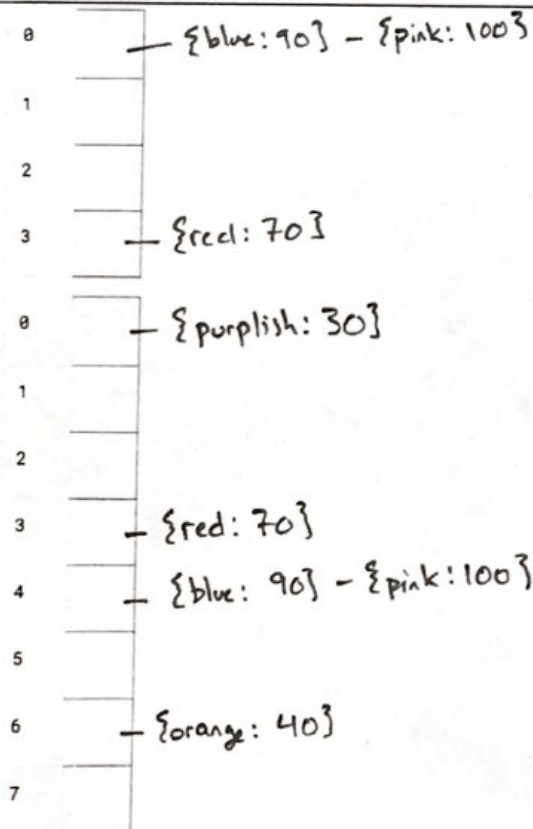 0 {blue: 90} - {pink: 100}
1
2
3 {red: 70}
0 {purplish: 30}
1
2
3 {red: 70}
4 {blue: 90} - {pink: 100}
5
6 {orange: 40}
7